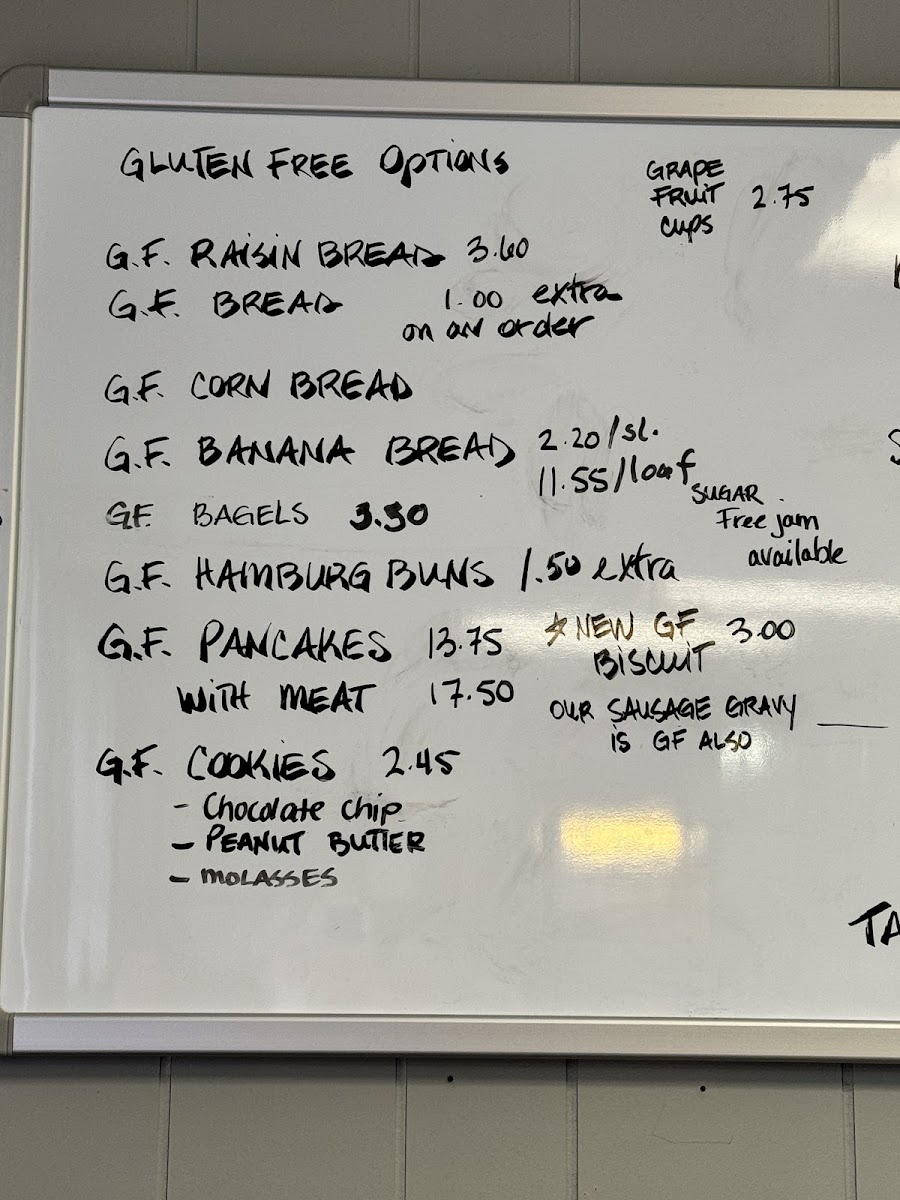 GLUTEN FREE OPTIONS
GRAPE
FRUIT 2.75
CUPS
G.F. RAISIN BREAD 3.60
G.F. BREAD 1.00 extra
on an order
G.F. CORN BREAD
G.F. BANANA BREAD 2.20/sl.
11.55/loaf
GF. BAGELS 3.50
SUGAR
Free jam
available
G.F. HAMBURG BUNS 1.50 extra
G.F. PANCAKES 13.75
WITH MEAT 17.50
☆ NEW GF 3.00
BISCUIT
OUR SAUSAGE GRAVY
IS GF ALSO
G.F. COOKIES 2.45
- Chocolate chip
- PEANUT BUTTER
- MOLASSES
TA